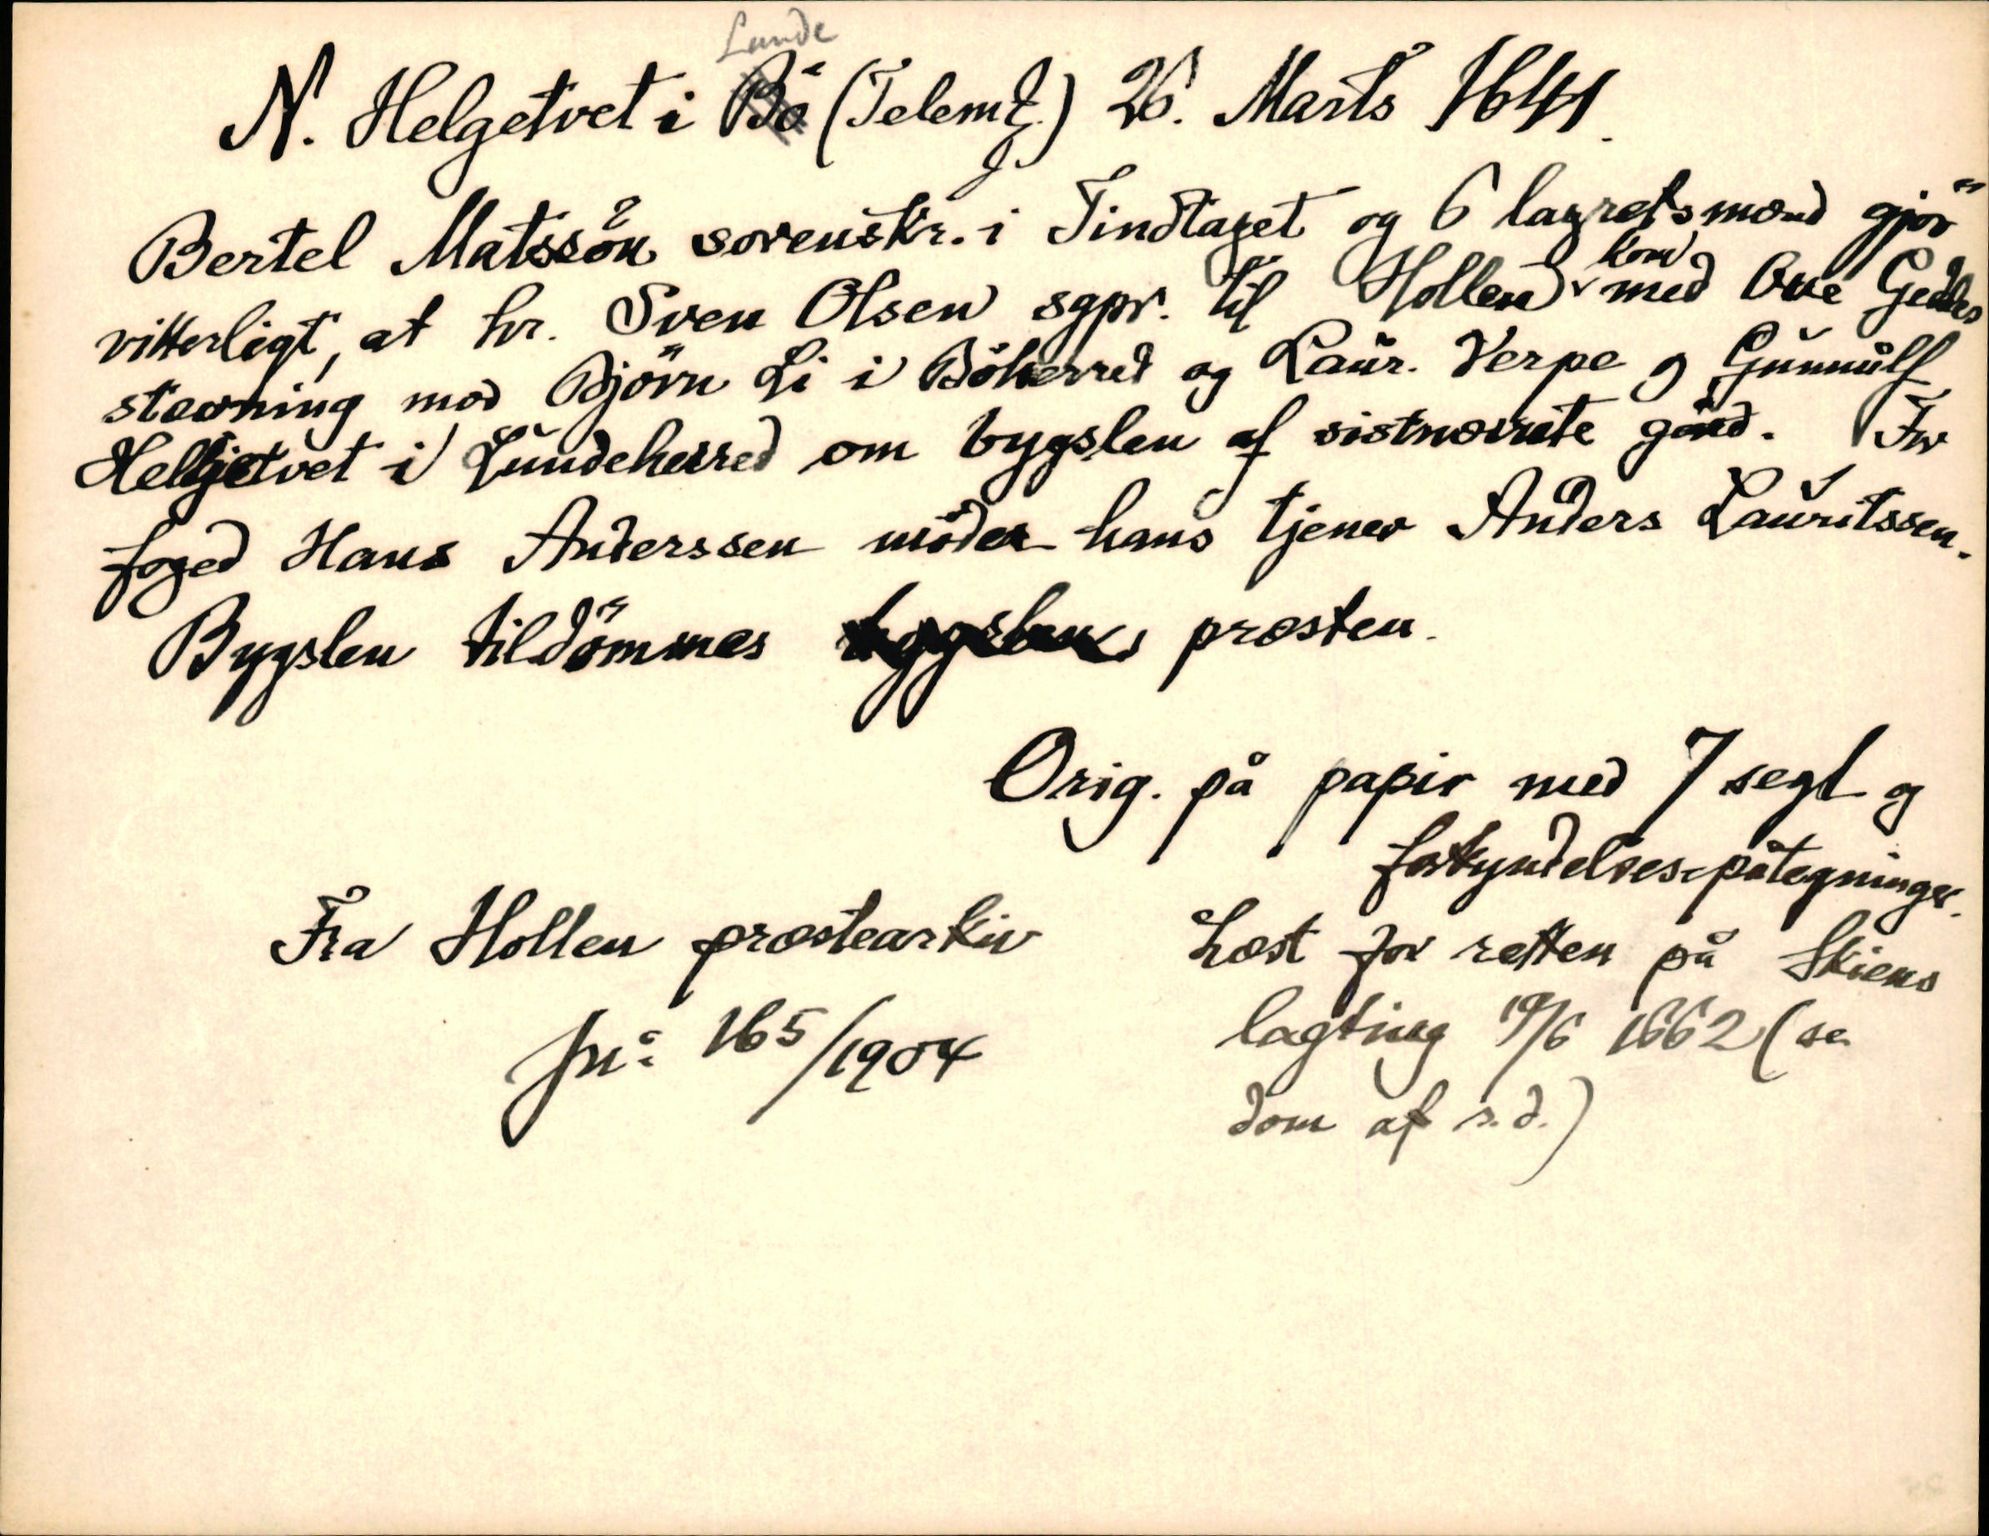 Lunde
N. Helgetvet i Bö (Telemk.) 26. Marts 1641.
Bertel Matssön sorenskr. i Tindlaget og 6 lagretsmænd gjör
kom
vitterligt, at hr. Sven Olsen sgpr. til Hollen med Ove Geddes
stævning mod Björn Li i Böherred og Laur. Verpe og Gunnulf
Helgetvet i Lundeherred om bygslen af sistnævnte gård. For
foged Hans Anderssen möder hans tjener Anders Lauritssen.
Bygslen tildömmes bygslen præsten.
Orig. på papir med 7 segl og
forkyndelses-påtegninger.
Fra Hollen præstearkiv
Læst for retten på Skiens
jn: 165/1904
lagting 19/6 1662 (se
dom af s.d.)